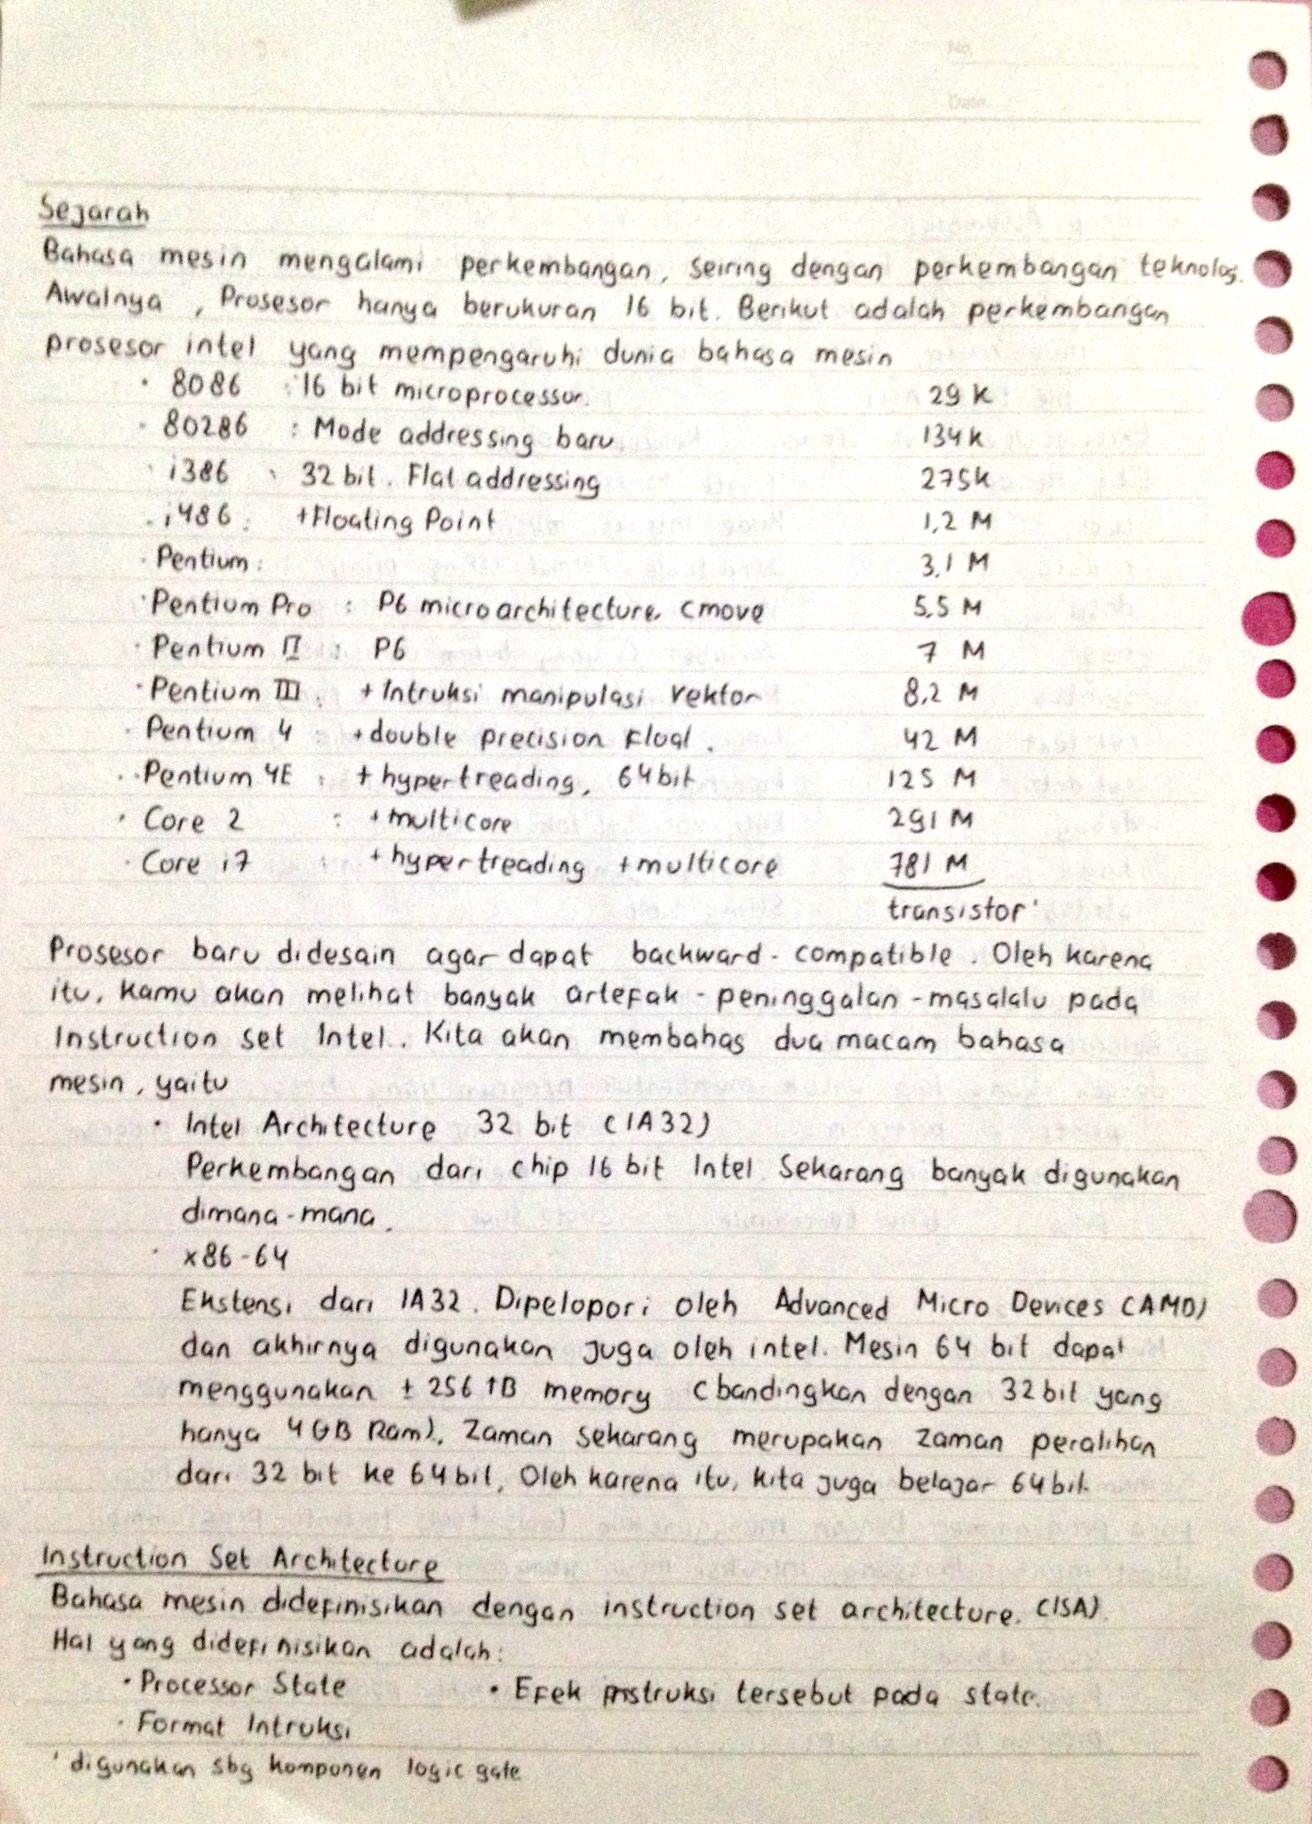 No.
Date
Sejarah
Bahasa mesin mengalami perkembangan, seiring dengan perkembangan teknologi.
Awalnya, Prosesor hanya berukuran 16 bit. Berikut adalah perkembangan
prosesor intel yang mempengaruhi dunia bahasa mesin
· 8086 : 16 bit microprocessor. 29 K
· 80286 : Mode addressing baru. 134 K
· i386 : 32 bit. Flat addressing 275K
· i486 : +Floating Point 1,2 M
· Pentium : 3,1 M
· Pentium Pro : P6 microarchitecture, cmove 5,5 M
· Pentium II : P6 7 M
· Pentium III : +Intruksi manipulasi vektor 8,2 M
· Pentium 4 : +double precision Float. 42 M
· Pentium 4E : +hypertreading, 64 bit 125 M
· Core 2 : +multicore 291 M
· Core i7 : +hypertreading +multicore 781 M
transistor'
Prosesor baru didesain agar dapat backward-compatible. Oleh karena
itu, kamu akan melihat banyak artefak-peninggalan-masalalu pada
Instruction set Intel. Kita akan membahas dua macam bahasa
mesin, yaitu
· Intel Architecture 32 bit (IA32)
Perkembangan dari chip 16 bit Intel Sekarang banyak digunakan
dimana-mana.
· x86-64
Ekstensi dari IA32. Dipelopori oleh Advanced Micro Devices (AMD)
dan akhirnya digunakan juga oleh intel. Mesin 64 bit dapat
menggunakan ± 256 TB memory (bandingkan dengan 32 bit yang
hanya 4 GB Ram). Zaman sekarang merupakan zaman peralihan
dari 32 bit ke 64 bit, Oleh karena itu, kita juga belajar 64 bit.
Instruction Set Architecture
Bahasa mesin didefinisikan dengan instruction set architecture. (ISA).
Hal yang didefinisikan adalah:
· Processor State • Efek instruksi tersebut pada state.
· Format Intruksi
' digunakan sbg komponen logic gate